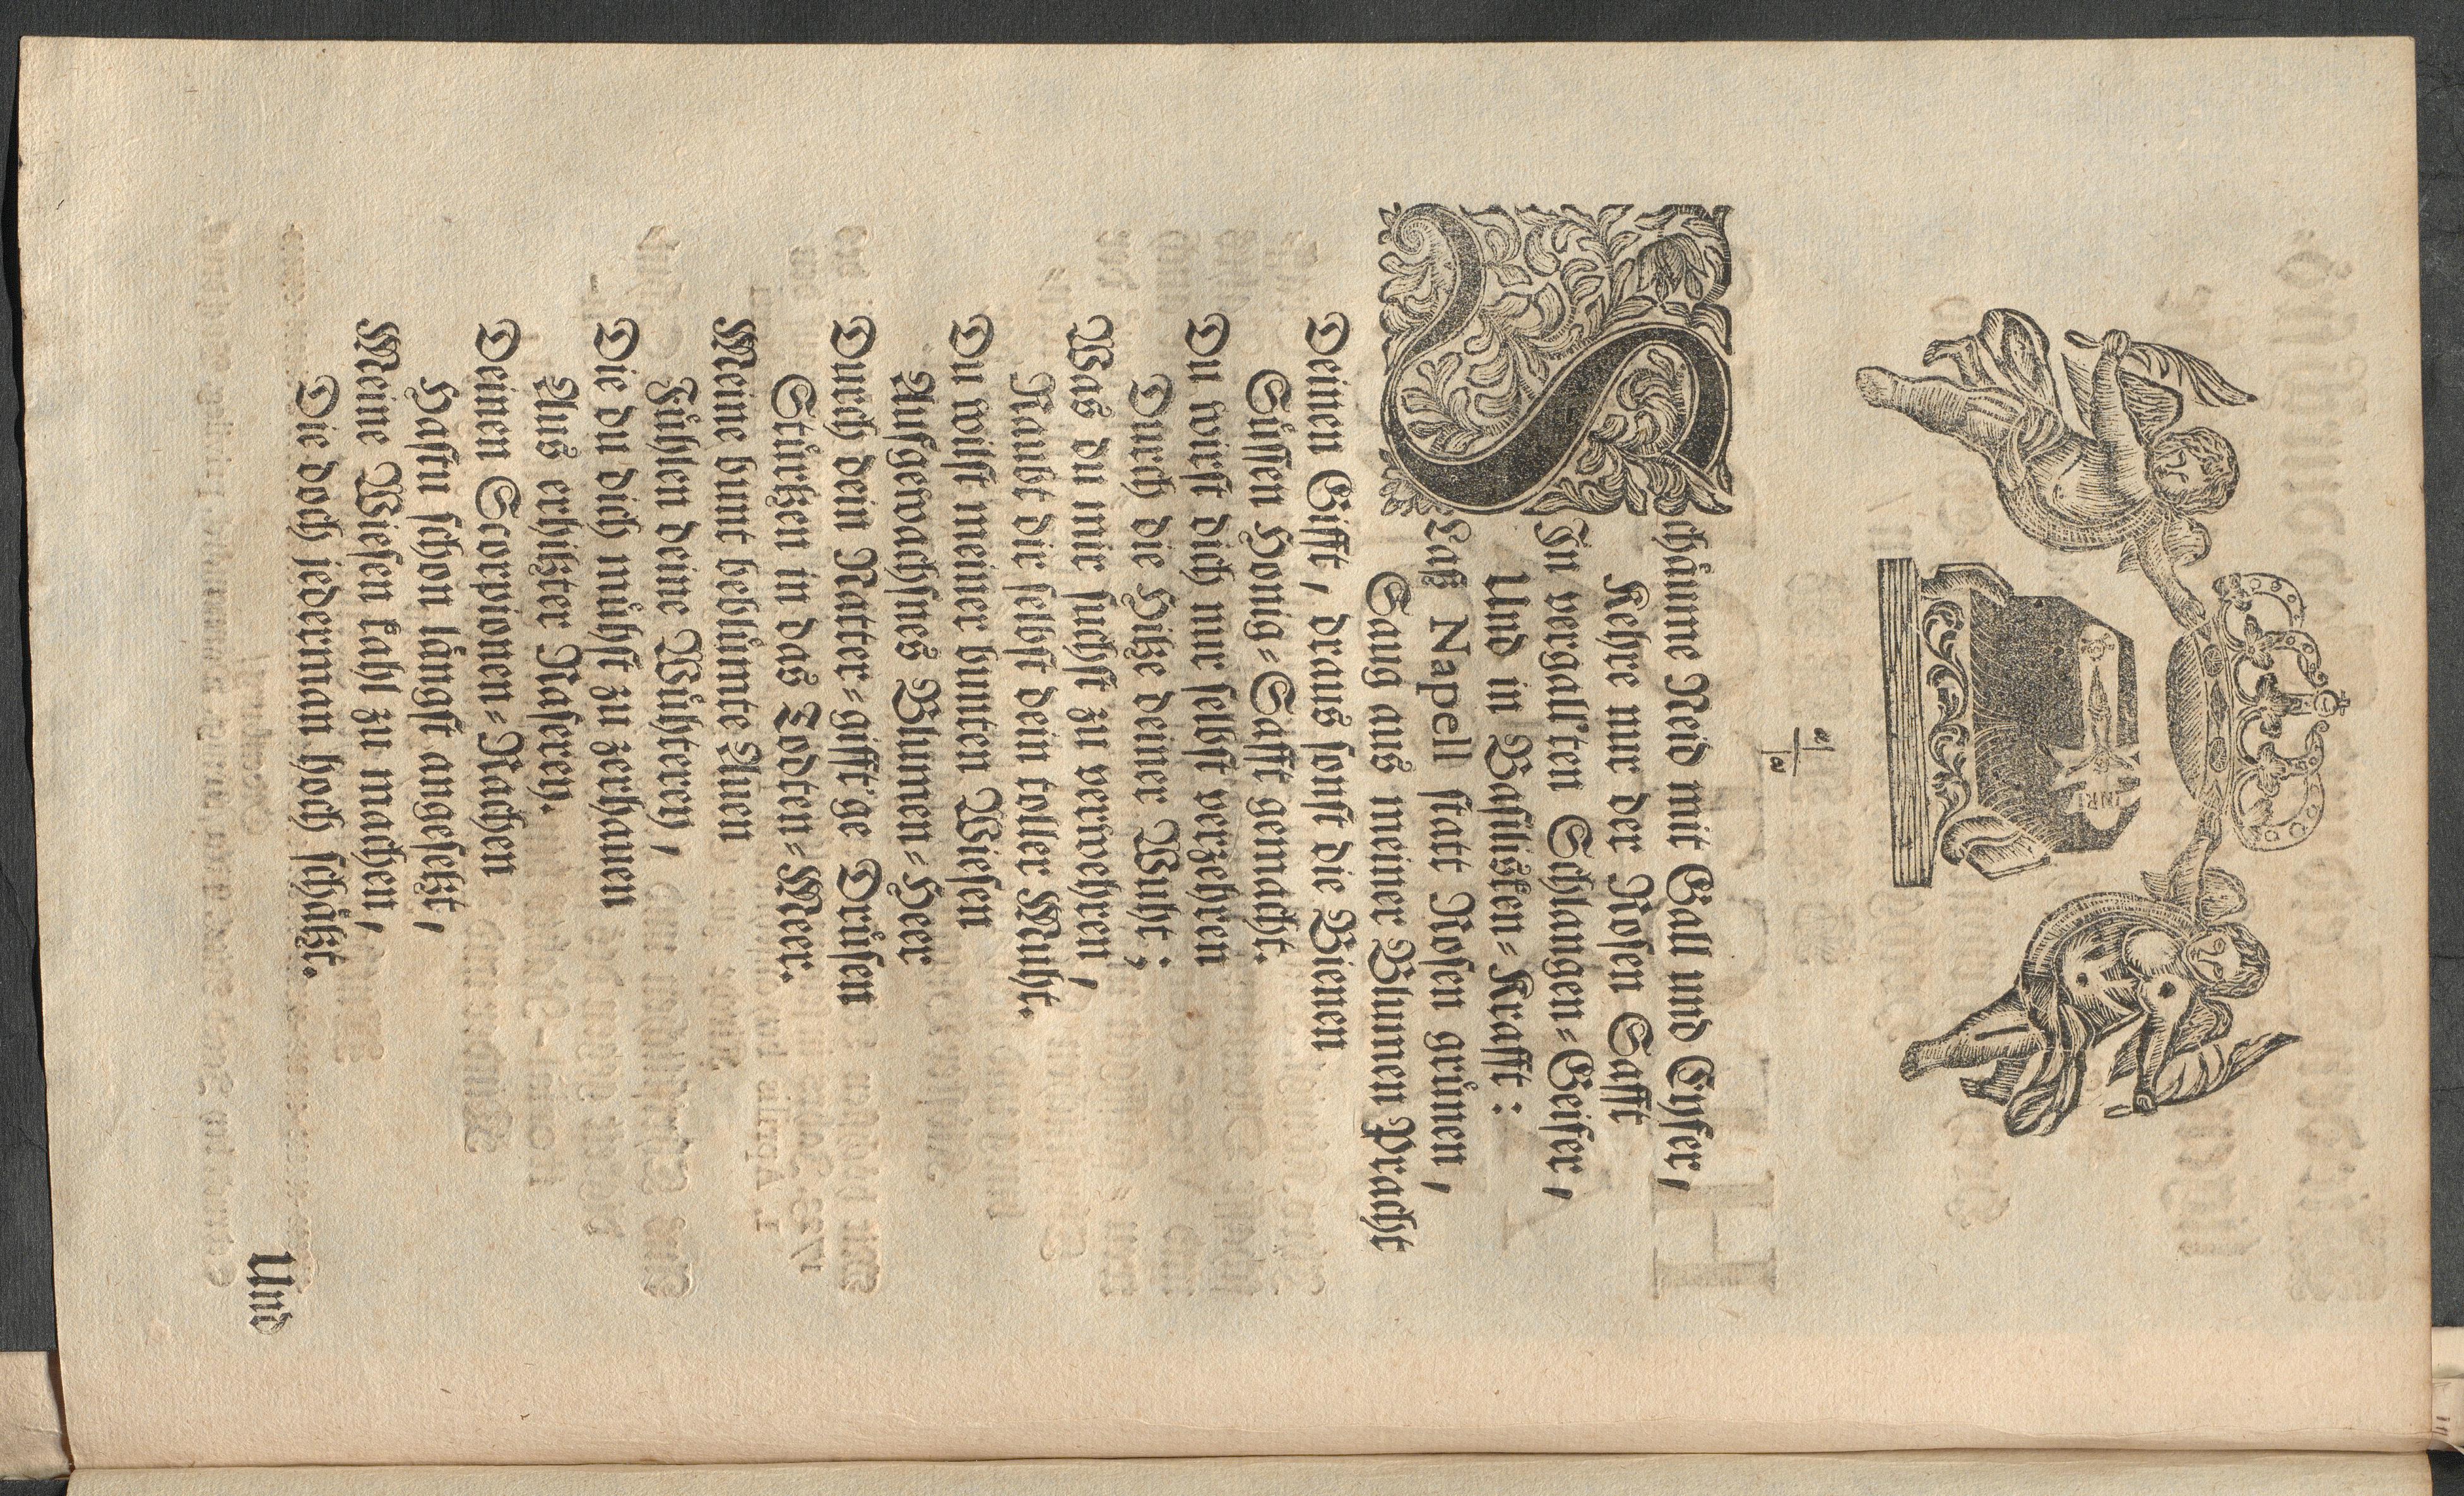 INRI
Schäume Neid mit Gall und Gyfer,
Kehre nur der Rosen Safft
In vergall'ten Schlangen-Geifer,
Und in Basilisken-Krafft:
Laß Napell statt Rosen grünen,
Saug aus meiner Blumen Pracht
Deinen Gifft, draus sonst die Bienen
Süssen Honig-Safft gemacht.
Du wirst dich nur selbst verzehren
Durch die Hitze deiner Wuht;
Was du mir suchst zu verwehren,
Raubt dir selbst dein toller Muht.
Du wilst meiner bunten Wiesen
Aufgewachsnes Blumen-Heer
Durch dein Natter-gifft'ge Drüsen
Stürtzen in das Todten-Meer.
Meine bunt beblümte Auen
Fühlen deine Wühterey,
Die du dich mühst zu zerhauen
Aus erhitzter Raserey.
Deinen Scorpionen-Rachen
Hastu schon längst angesetzt,
Meine Wiesen kahl zu machen,
Die doch jederman hoch schätzt.
Und